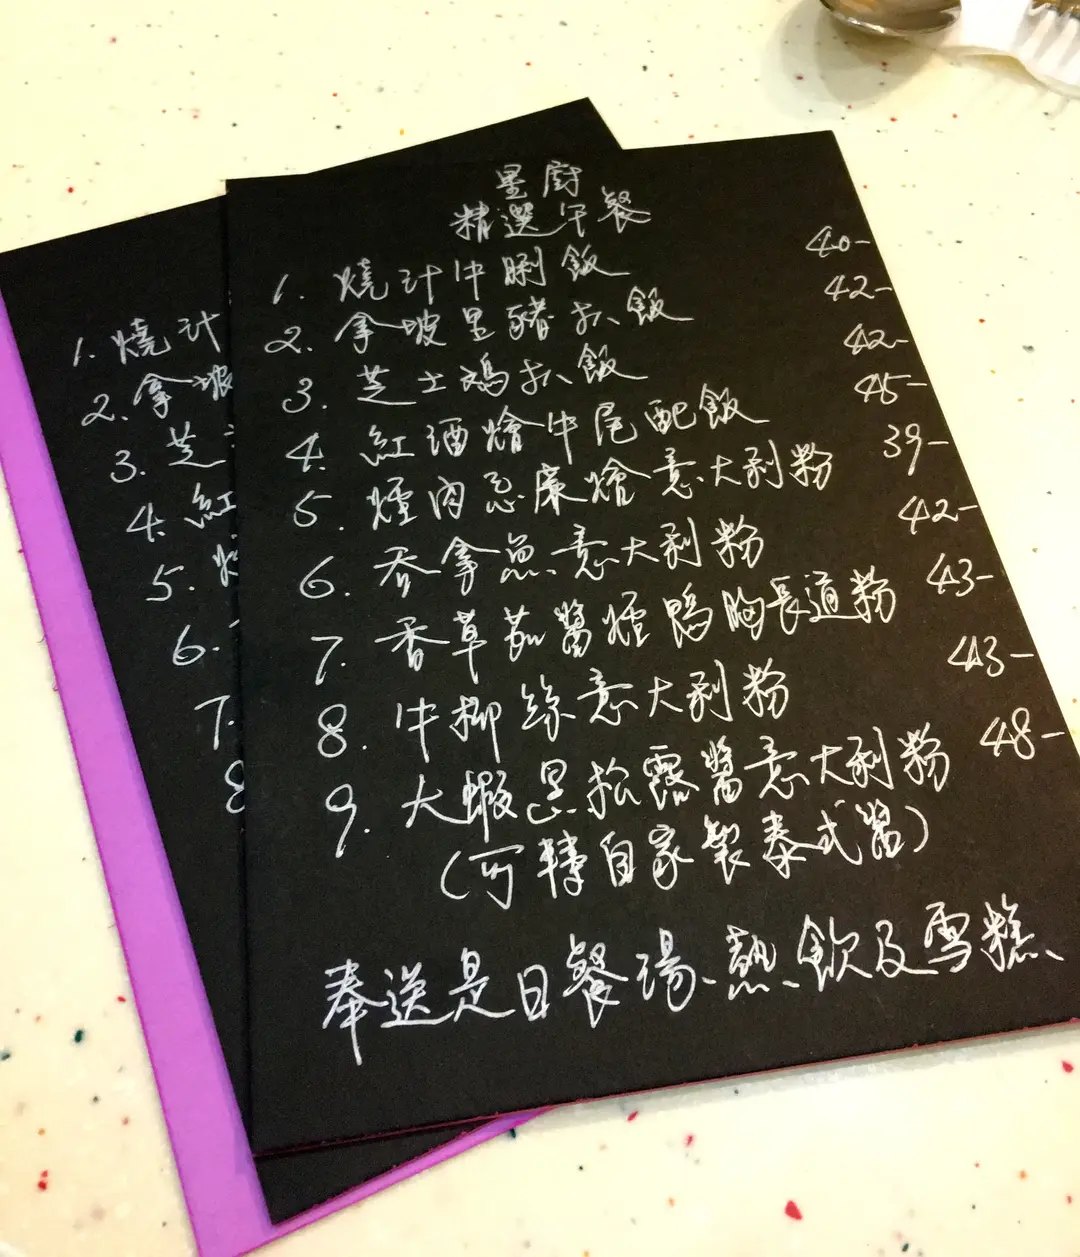 星廚
精選午餐
1. 燒汁牛脷飯 40-
2. 拿坡里豬扒飯 42-
3. 芝士鸡扒飯 42-
4. 紅酒燴牛尾配飯 45-
5. 煙肉忌廉燴意大利粉 39-
6. 吞拿魚意大利粉 42-
7. 香草茄醬煙鴨胸長通粉 43-
8. 牛柳絲意大利粉 43-
9. 大蝦黑松露醬意大利粉 48-
(可轉自家製泰式醬)
奉送是日餐湯、熱飲及雪糕、
1. 燒汁
2. 拿坡
3. 芝
4. 紅
5.
6.
7.
8